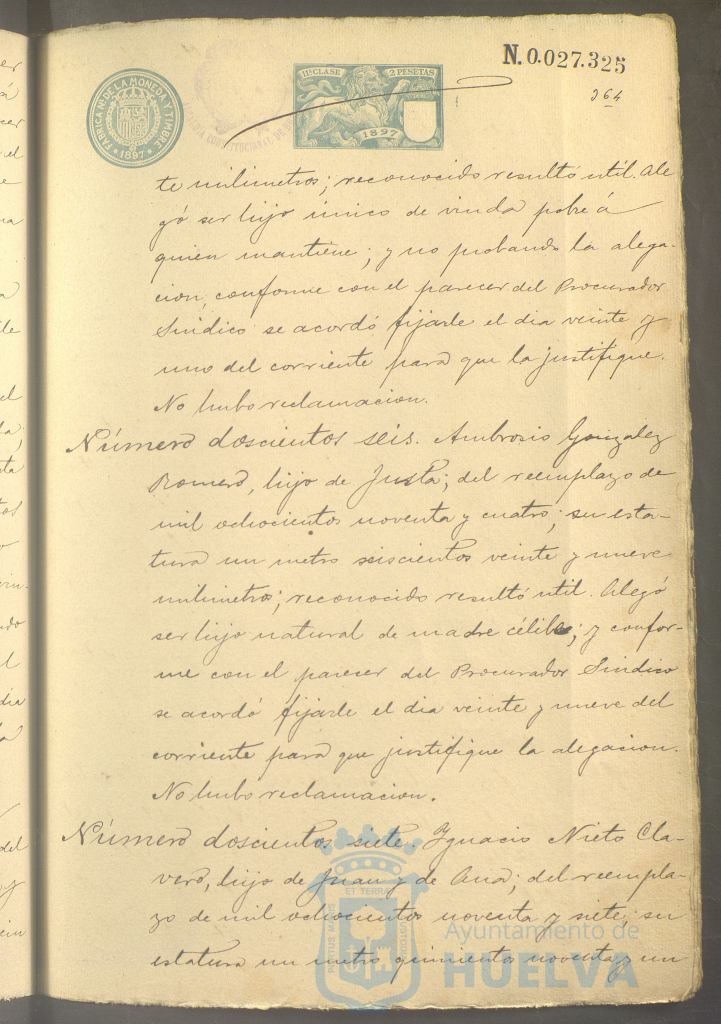 N. 0.027.325
364
FÁBRICA NL DE LA MONEDA Y TIMBRE
1897
11ª CLASE 2 PESETAS
1897
te milimetros; reconocido resultó util. Ale
gó ser hijo único de viuda pobre á
quien mantiene; y no probando la alega-
cion, conforme con el parecer del Procurador
Sindico se acordó fijarle el dia veinte y
uno del corriente para que la justifique.
No hubo reclamacion.
Número doscientos seis. Ambrosio Gonzalez
Romero, hijo de Justa; del reemplazo de
mil ochocientos noventa y cuatro; su esta-
tura un metro seiscientos veinte y nueve
milimetros; reconocido resultó util. Alegó
ser hijo natural de madre célibe; y confor-
me con el parecer del Procurador Sindico
se acordó fijarle el dia veinte y nueve del
corriente para que justifique la alegacion.
No hubo reclamacion.
Número doscientos siete. Ignacio Nieto Cla-
vero, hijo de Juan y de Ana; del reempla-
zo de mil ochocientos noventa y siete; su
estatura un metro quinientos noventa y un
PORTUS MARIS ET TERRAE CUSTODIA
Ayuntamiento de
HUELVA